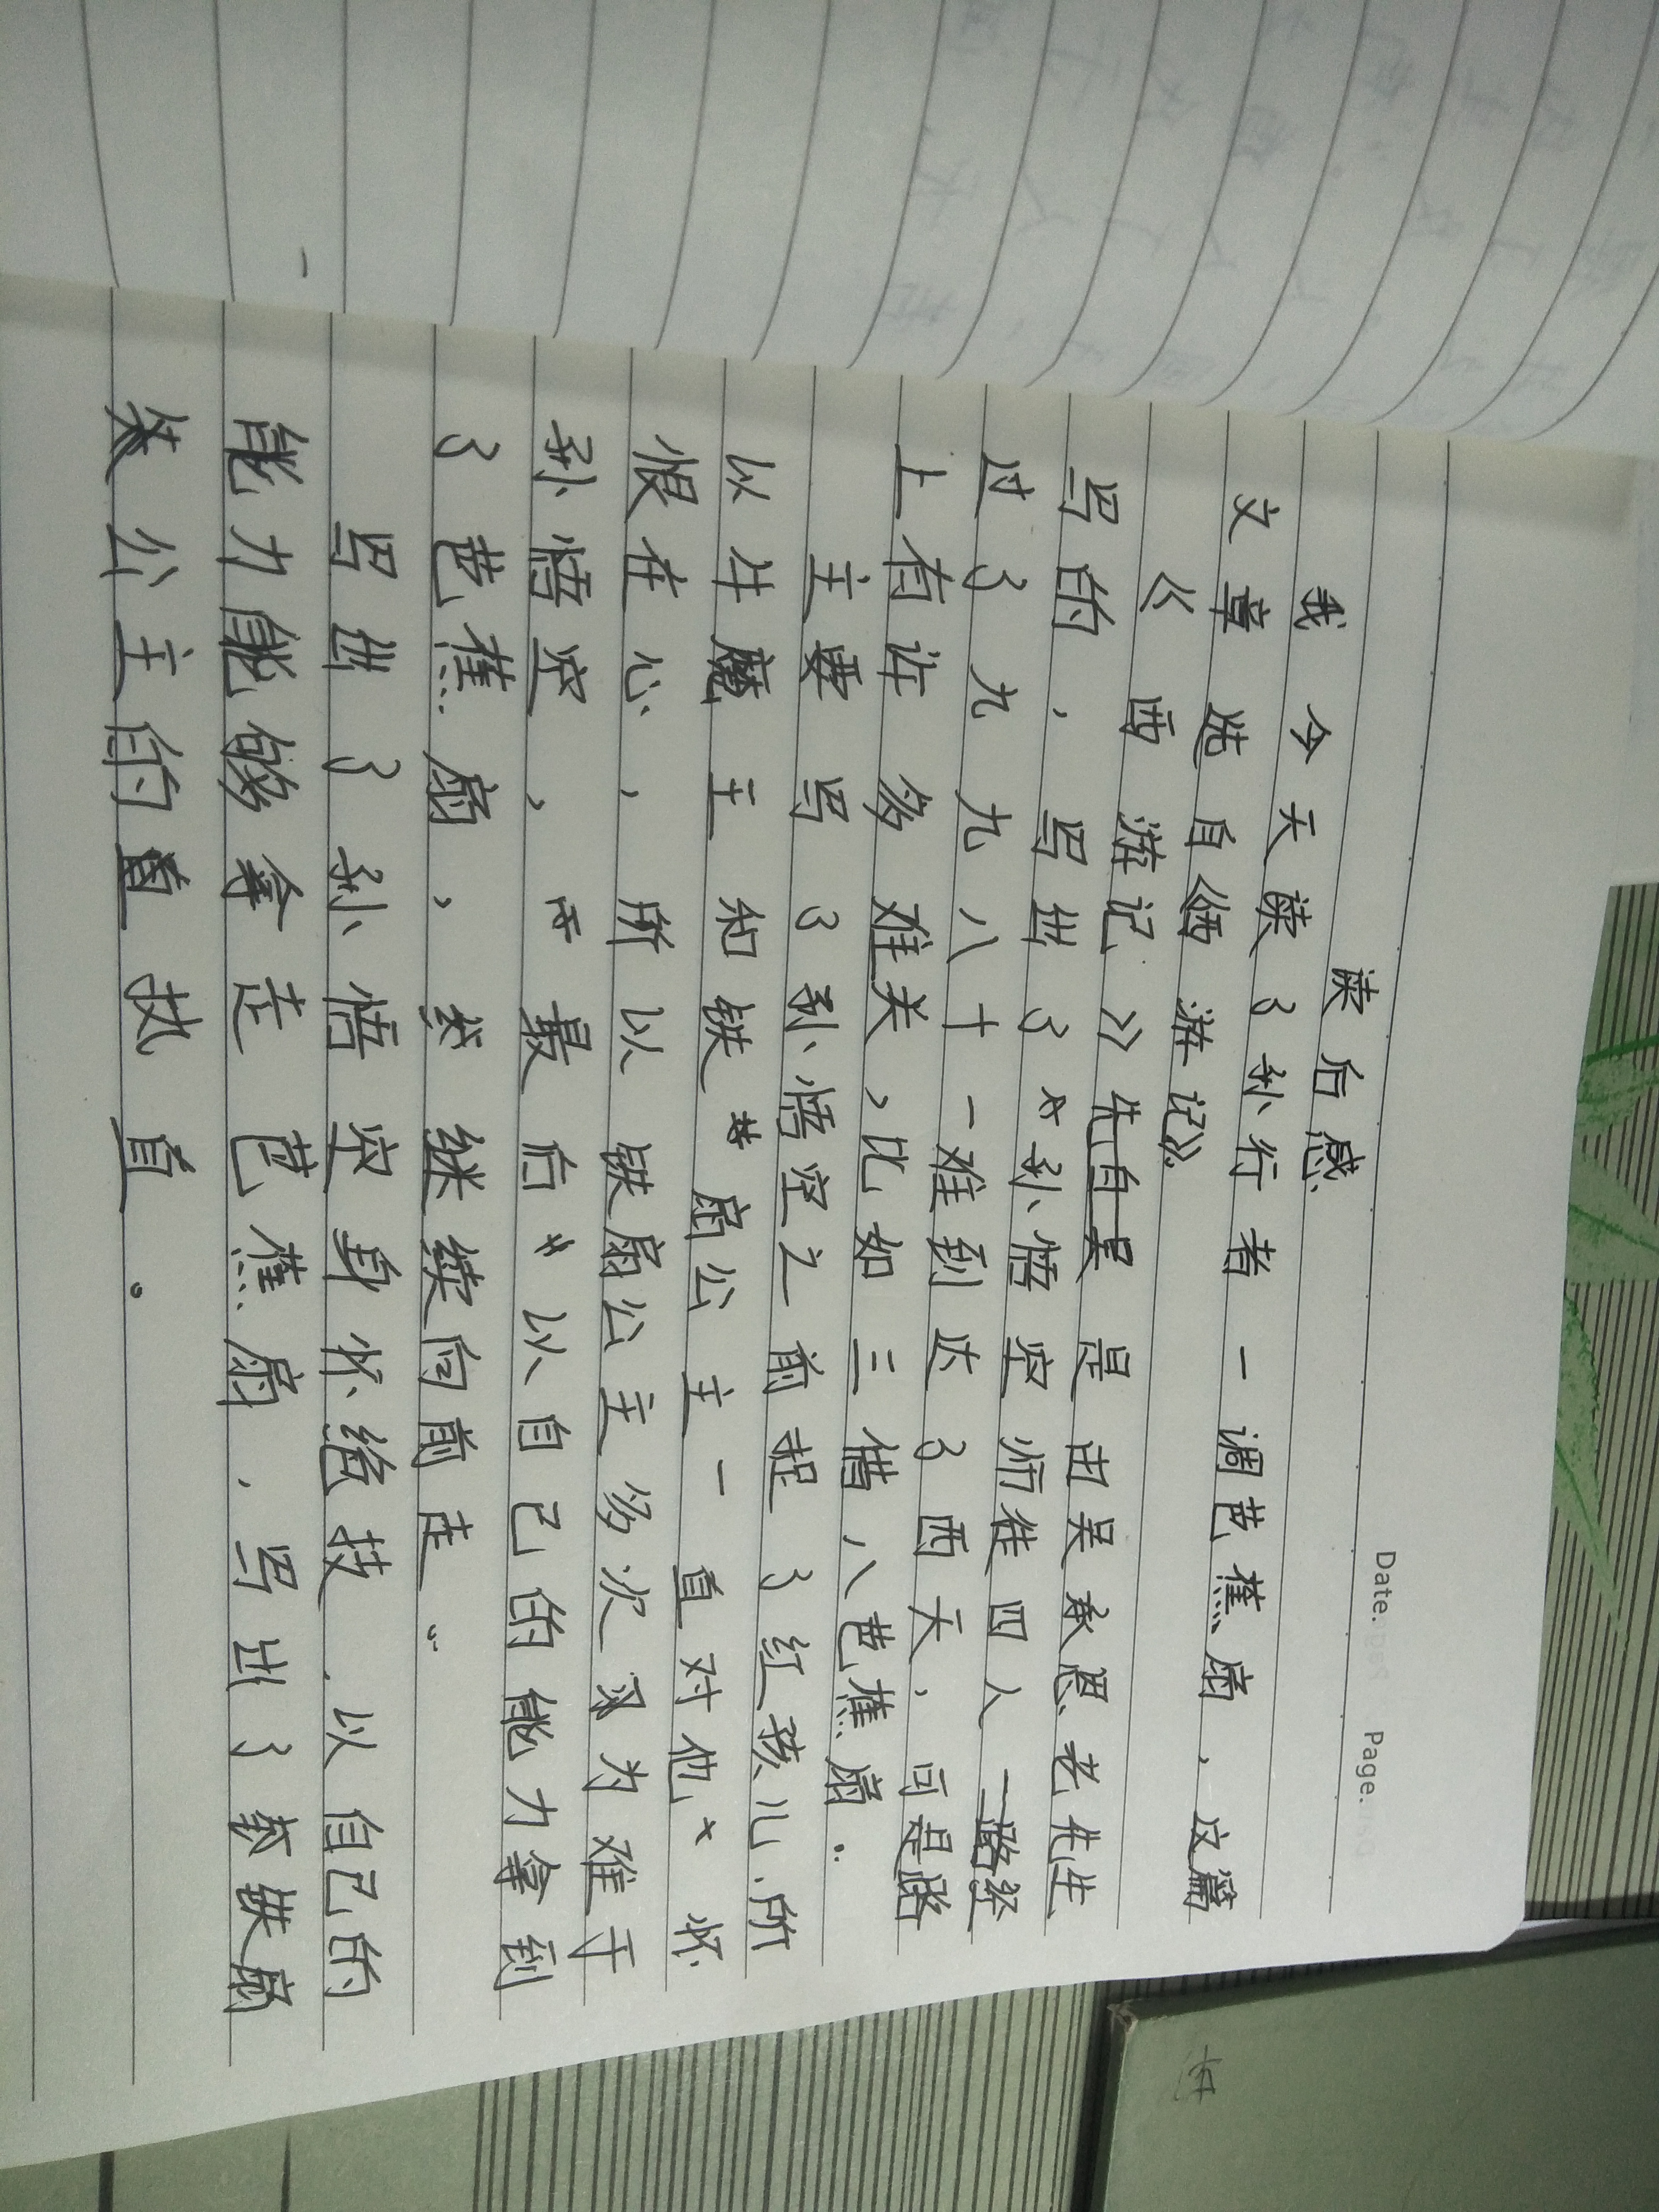 Date: Page.
读后感
我今天读了孙行者一调芭蕉扇,这篇
文章选自《西游记》。
《西游记》先自吴是由吴承恩老先生
写的,写出了孙悟空师徒四人一路经
过了九九八十一难到达了西天,可是路
上有许多难关,比如三借八芭蕉扇。
主要写了孙悟空之前捉了红孩儿,所
以牛魔王和铁扇公主一直对他怀
恨在心,所以铁扇公主多次为难于
孙悟空,最后以自己的能力拿到
了芭蕉扇,继续向前走。
写出了孙悟空身怀绝技,以自己的
能力能够拿走芭蕉扇,写出了铁扇
公主的直执直。